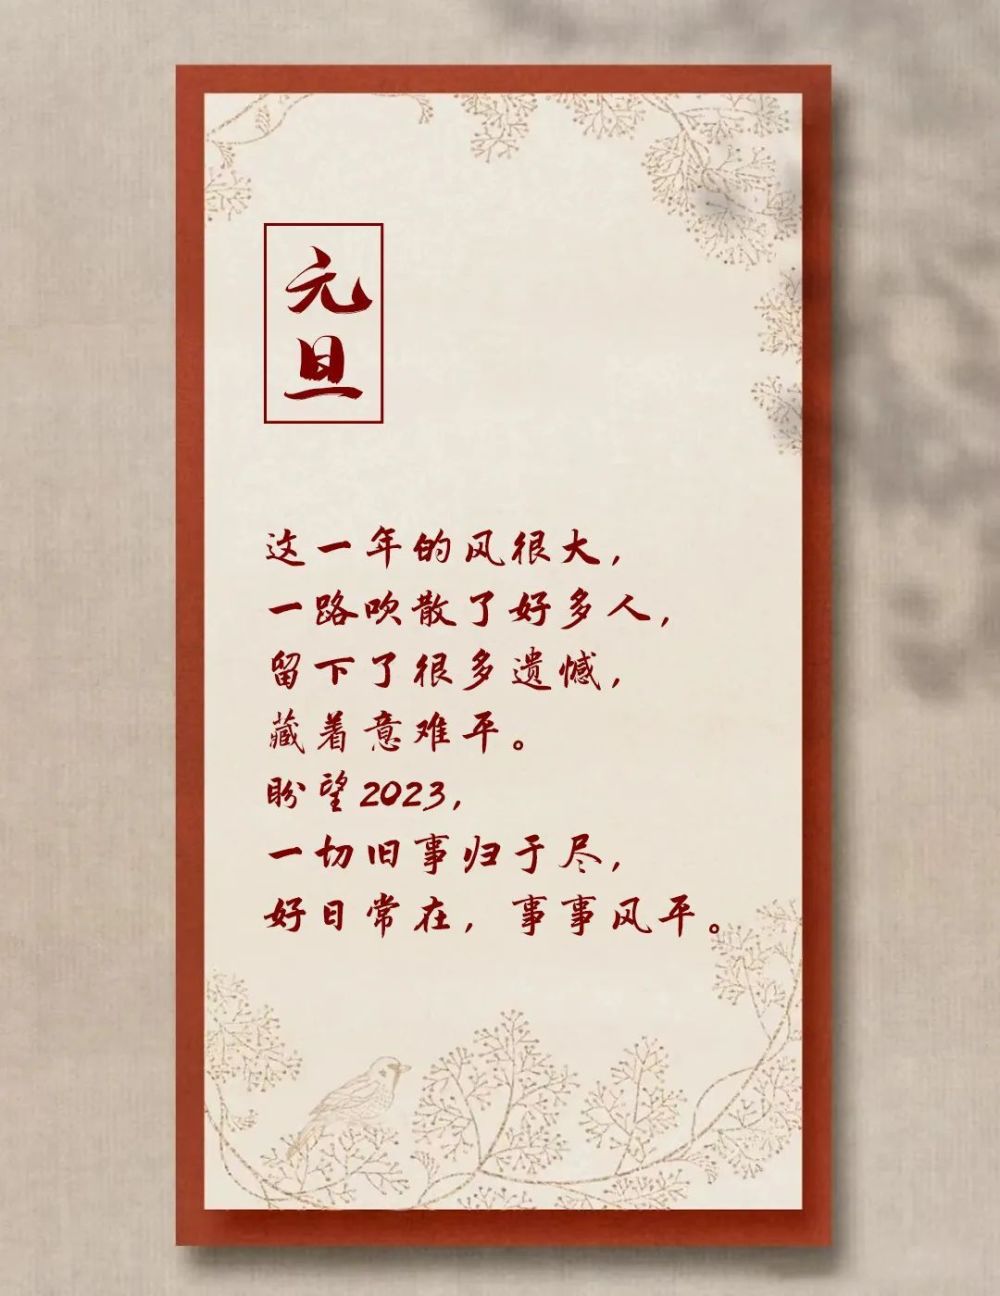 元
旦
这一年的风很大，
一路吹散了好多人，
留下了很多遗憾，
藏着意难平。
盼望2023，
一切旧事归于尽，
好日常在，事事风平。